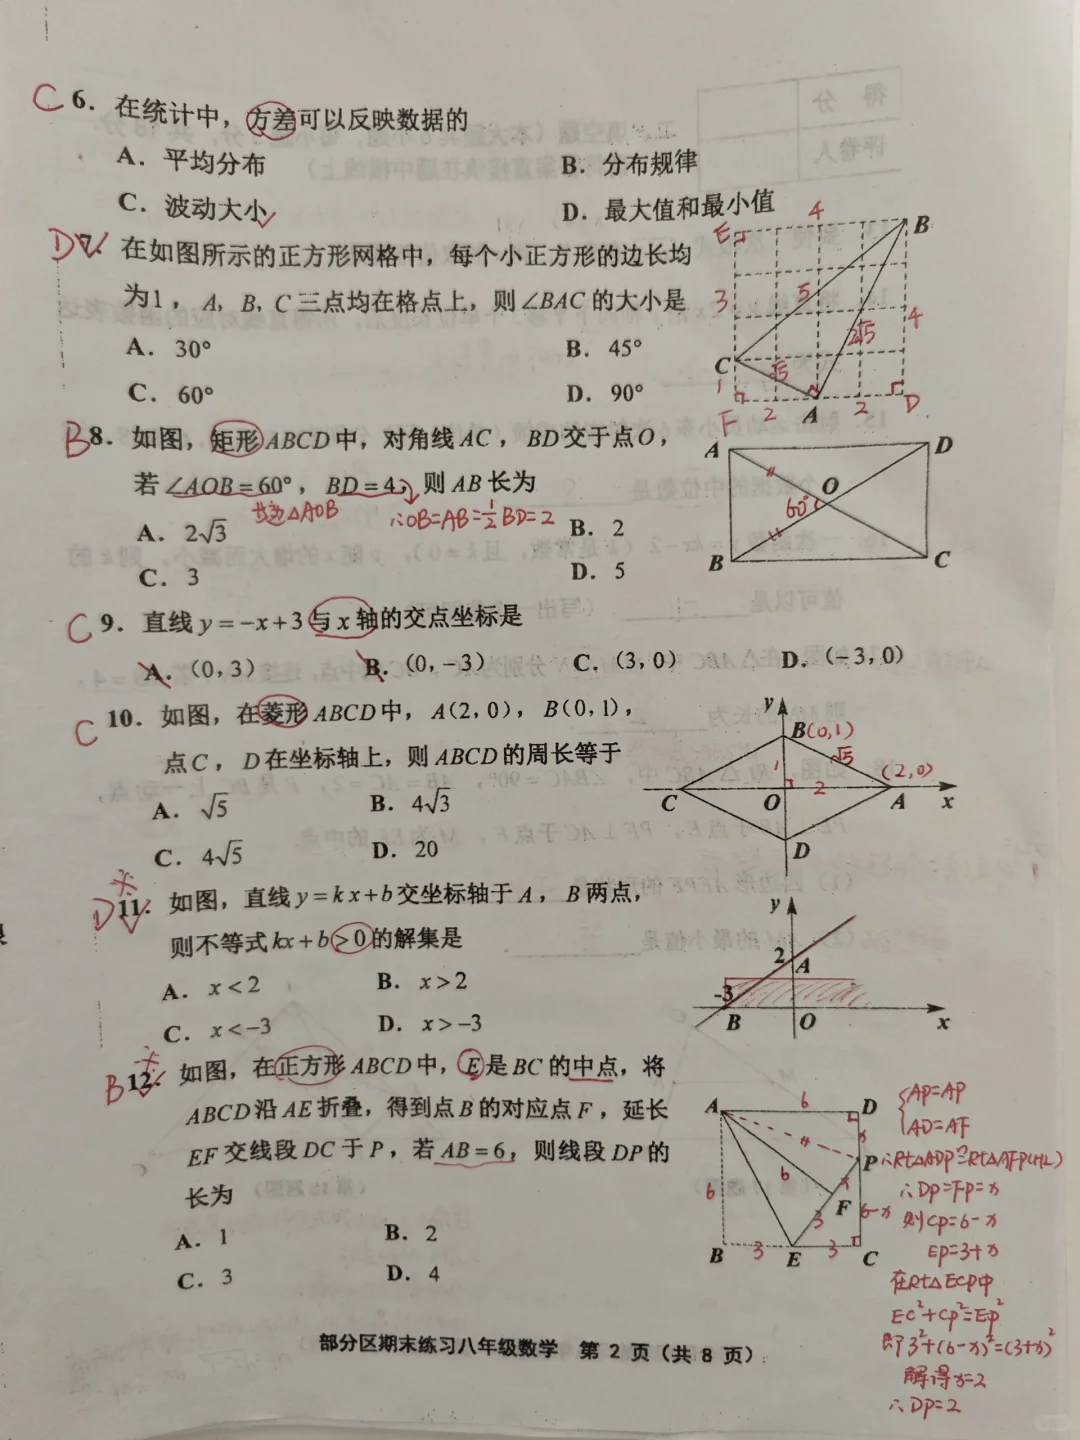 C 6. 在统计中，方差可以反映数据的
A. 平均分布
B. 分布规律
C. 波动大小
D. 最大值和最小值
D 7. 在如图所示的正方形网格中，每个小正方形的边长均
为1，A，B，C三点均在格点上，则∠BAC的大小是
A. 30°
B. 45°
C. 60°
D. 90°
E 4 B
3 5 2√5 4
C √5
1 F 2 A 2 D
B 8. 如图，矩形ABCD中，对角线AC，BD交于点O，
若∠AOB=60°，BD=4，则AB长为
△AOB
∴OB=AB=½BD=2
A. 2√3
B. 2
C. 3
D. 5
A D
O
60°
B C
C 9. 直线y=-x+3与x轴的交点坐标是
A. (0, 3)
B. (0, -3)
C. (3, 0)
D. (-3, 0)
C 10. 如图，在菱形ABCD中，A(2, 0)，B(0, 1)，
点C，D在坐标轴上，则ABCD的周长等于
A. √5
B. 4√3
C. 4√5
D. 20
y
B(0,1)
1 √5 (2,0)
C O 2 A x
D
D 11. 如图，直线y=kx+b交坐标轴于A，B两点，
则不等式kx+b>0的解集是
A. x<2
B. x>2
C. x<-3
D. x>-3
y
2 A
-3
B O x
B 12. 如图，在正方形ABCD中，E是BC的中点，将
ABCD沿AE折叠，得到点B的对应点F，延长
EF交线段DC于P，若AB=6，则线段DP的
长为
A. 1
B. 2
C. 3
D. 4
A 6 D
x
P
6 6 x
F 6-x
3
B 3 E 3 C
AP=AP
AD=AF
∴Rt△ADP≌Rt△AFP(HL)
∴DP=FP=x
则CP=6-x
EP=3+x
在Rt△ECP中
EC²+CP²=EP²
即3²+(6-x)²=(3+x)²
解得x=2
∴DP=2
部分区期末练习八年级数学 第 2 页（共 8 页）